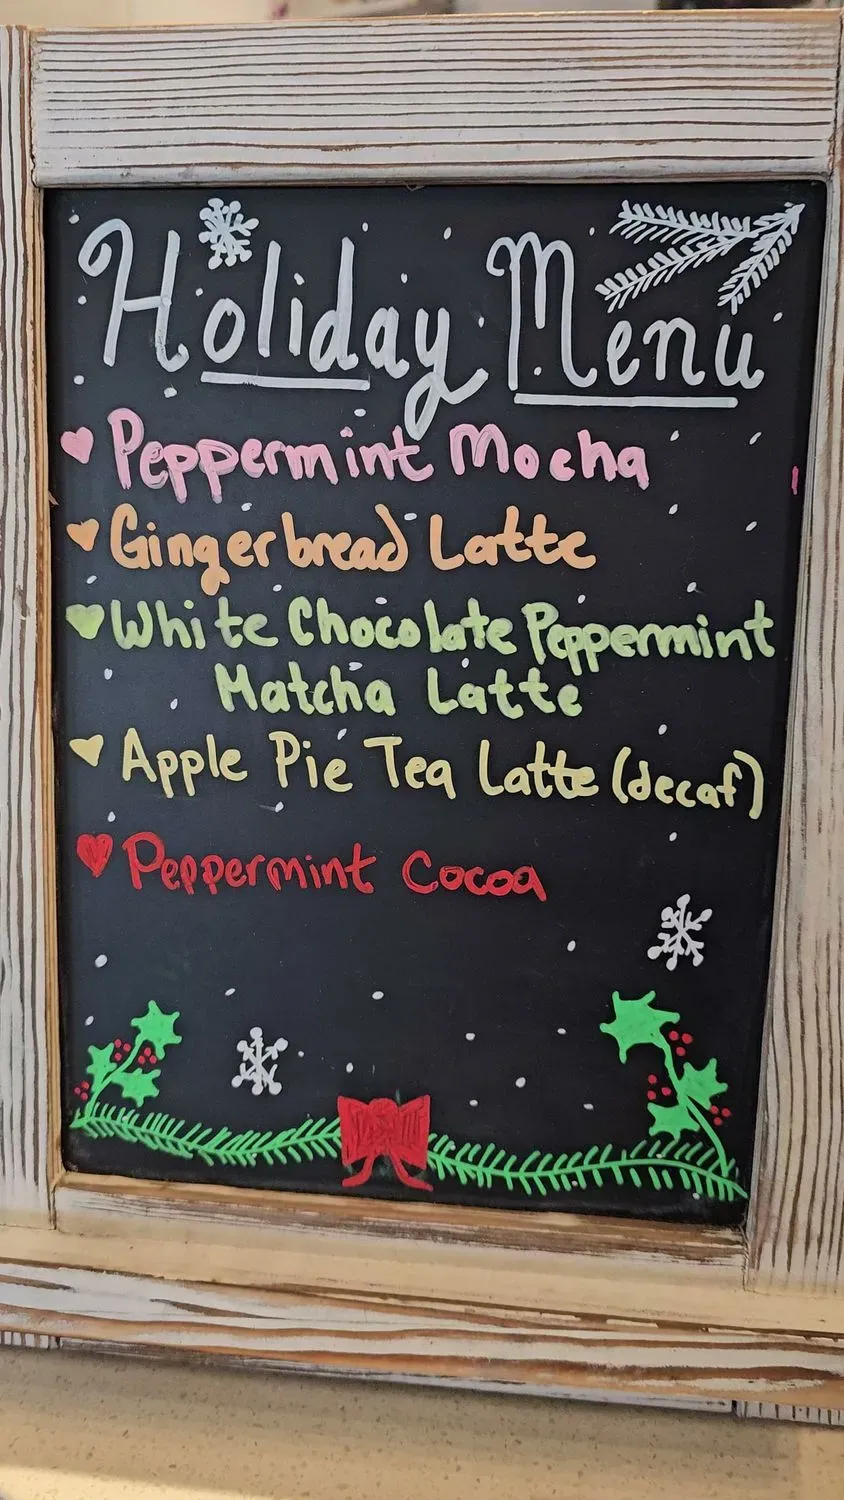 Holiday Menu
Peppermint Mocha
Gingerbread Latte
White Chocolate Peppermint
Matcha Latte
Apple Pie Tea Latte (decaf)
Peppermint Cocoa